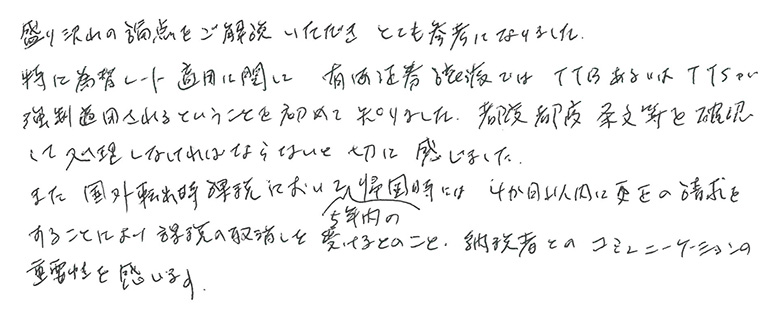 盛り沢山の論点をご解説いただき とても参考になりました.
特に為替レート適用に関して 有価証券譲渡では TTBあるいは TTSが
強制適用されるということを初めて知りました. 都度都度 条文等を確認
して処理しなければならないと切に感じました.
また 国外転出時課税において 帰国時には 4か月以内に更正の請求を
5年内の
することにより 課税の取消しを受けるとのこと. 納税者とのコミュニケーションの
重要性を感じます.